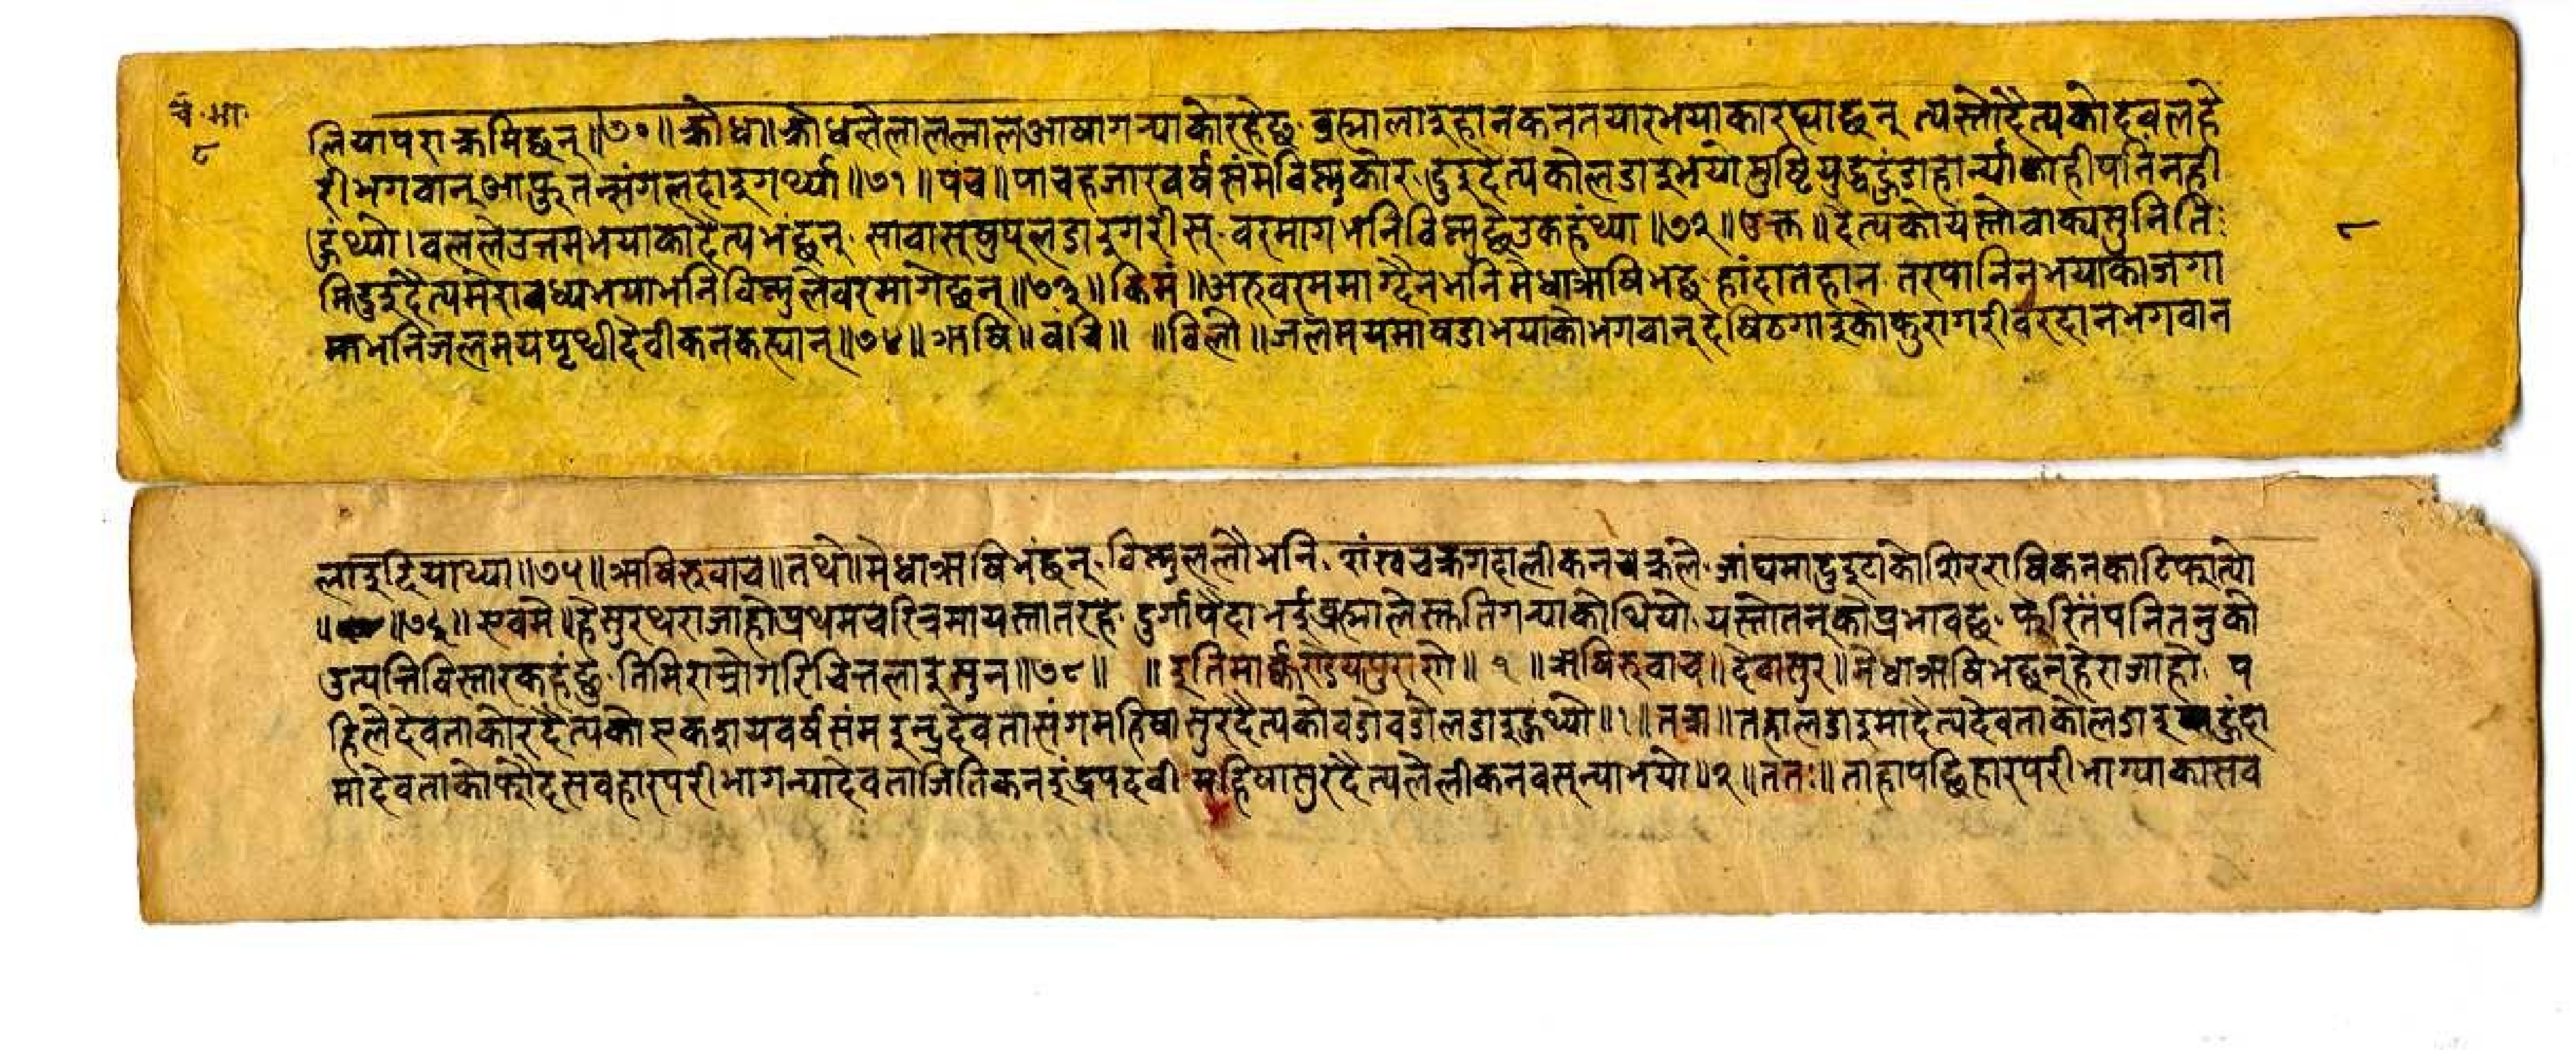 चं.भा.
८
लियापराक्रमिछन् ॥७०॥ क्रोधा ॥ क्रोधलेलाललालआषागर्‍याकोरहेछ ब्रह्मालाइहानकनतयारभयाकारह्याछन् त्यस्तोदैत्यकोदेवलहे
रीभगवान्आफुतन्संगलहाइगर्थ्या ॥७१॥ पंच ॥ पाचहजारवर्षसंमविष्णुकोर दुइदैत्यकोलडाइभयोमुष्टियुद्धहुंदाहार्‍याकाहीपनिनही
हुंथ्यो । वललेउन्नमभयाकादैत्यभंछन् सावाससुपुलडाइगरीस् वरमागभनिविष्णुछेउकहंथ्या ॥७२॥ उक्त ॥ दैत्यकोयस्तोवाक्यसुनिति
मिदुइदैत्यमेरावध्यभयाभनिविष्णुलेवरमागेछन् ॥७३॥ किमं ॥ अरुवरममाग्दैनभनिमेधाऋषिभंछ हांहातहान तरपानिनभयाकाजगा
माभनिजलमयपृथ्वीदेवीकनकह्यान् ॥७४॥ ऋषि ॥ वंचि ॥ ॥ विलो ॥ जलमयमाषडाभयाकोभगवान्देषिठगाइकोकुरागरीवरदानभगवान
८
लाइदियाथ्या ॥७५॥ ऋषिरुवाच ॥ तथो ॥ मेधाऋषिभंछन् विष्णुलेलौभनि संखचक्रगदालीकनचक्रले जांघमादुइटाकोशिरराषिकनकाटिफाल्यो
॥७६॥ एवमे ॥ हेसुरथराजाहोप्रथमचरित्रमायस्तातरहे दुर्गापैदाभईब्रह्मालेस्तुतिगर्‍याकोथियो यस्तोतनुकोप्रभावछ फेरितंपनितनुको
उत्पत्तिविस्तारकहंछु तिमिराम्रोगरिचित्तलाइसुन ॥७८॥ ॥ इतिमार्कण्डेयपुराणे ॥ १ ॥ ऋषिरुवाच ॥ देवासुर ॥ मेधाऋषिभंछन्हेराजाहो प
हिलेदेवताकोरदैत्यकोएकशयवर्षसंमइन्द्रदेवतासंगमहिषासुरदैत्यकोवडोवडोलडाइहुंथ्यो ॥१॥ तत्रा ॥ तहालडाइमादैत्यदेवताकोलडाइहुंदा
मादेवताकोफौदसवहारपरीभागन्यादेवताजितिकनइंद्रपदवी महिषासुरदैत्यलेलीकनवसन्याभयो ॥२॥ ततः ॥ ताहापछिहारपरीभाग्याकासव